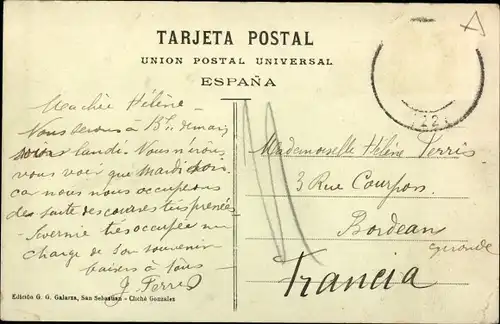 TARJETA POSTAL
UNION POSTAL UNIVERSAL
ESPAÑA
Ma chère Hélène –
Nous serons à
lundi. Nous n'irons
vous voir que mardi soir
car nous nous occuperons
de suite des courses très pressées
très occupée me
charge de son souvenir
baisers à tous –
J. Ferris
Mademoiselle Hélène Ferris
3 Rue Courpon
Bordeau
Gironde
Francia
Edición G. G. Galarza, San Sebastian – Cliché Gonzalez